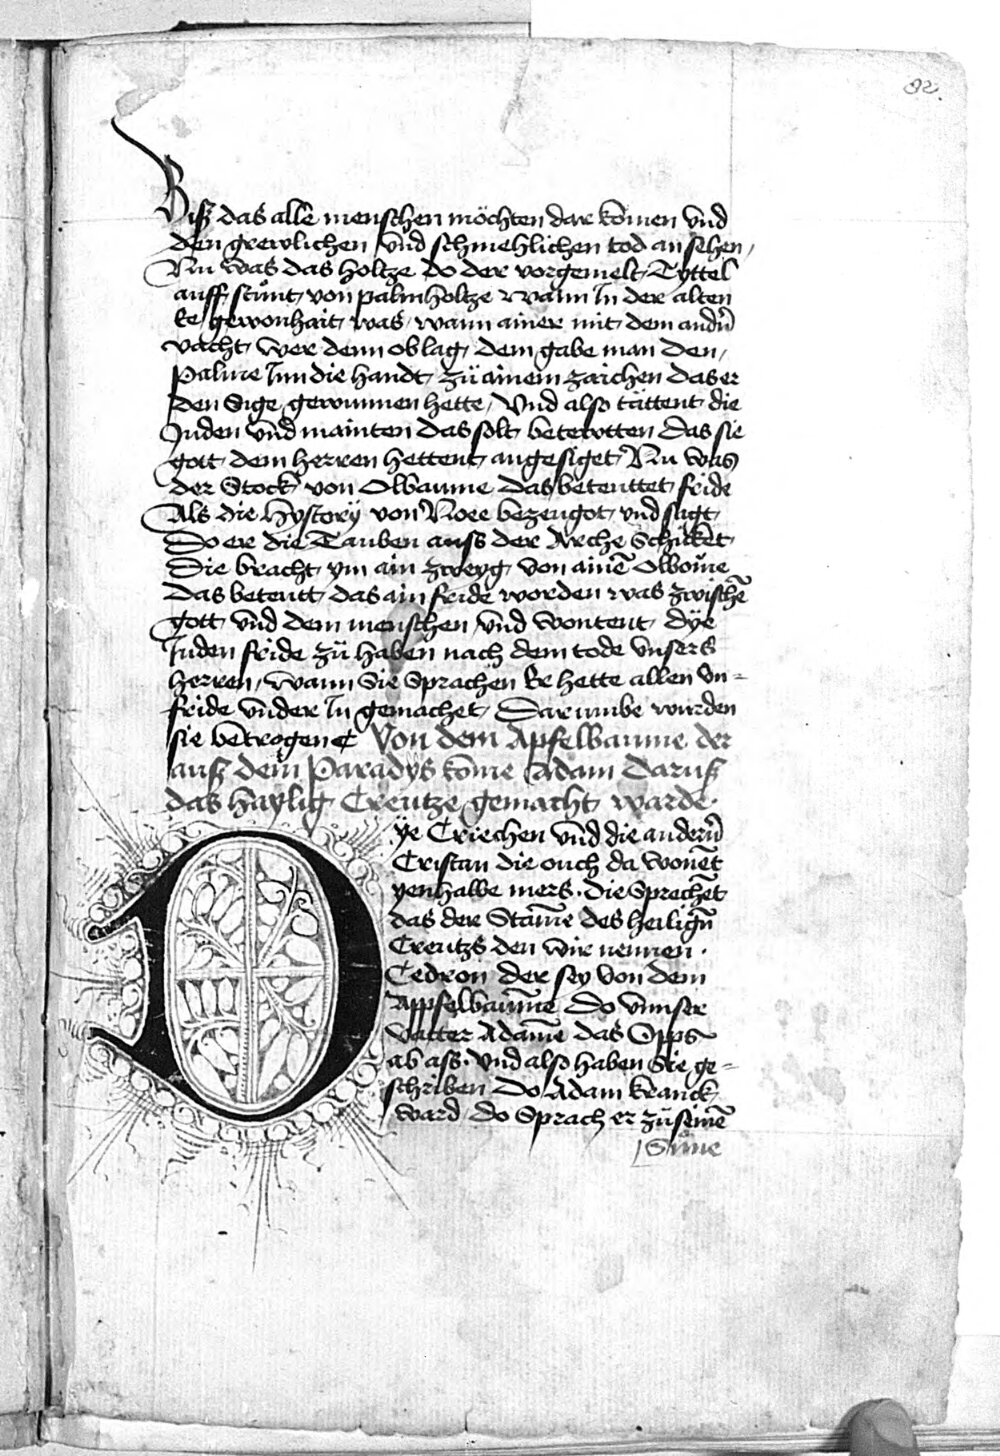 82.
Biß das alle menschen möchten dar komen vnd
den grewlichen vnd schmehlichen tod an sehen,
Nu was das holtze do der vorgemelt Tyttel
auff stůnt, von palmholtze wann In der alten
Ee gewonhait, was, wann ainer mit dem andrn̄
vacht, wer denn oblag, dem gabe man den,
Palme Inn die handt, zü ainem zaichen das er
den Sige gewunnen hette, Vnd also tättent die
Juden vnd mainten das solt betewtten das sie
gott dem herren hettent, angesiget, Nu was
der Stock von Olbaume das beteuttet fride
Als die hystorÿ von Noee bezeugot vnd sagt
Do er die Tauben auss der Arche Schicket
Die bracht ym ain zweyg, von ainē Olbome
das beteutt das ain fride worden was zwischē
gott vnd dem menschen, vnd wontent, dÿe
Juden fride zü haben nach dem tode vnsers
herren, wann Sie Sprachen Er hette allen vn-
fride vnder In gemachet, Darumbe wurden
sie betrogen Von dem Apfelbaume. der
auß dem Paradÿs kome Adam daruß
das haylig Creutze gemacht warde.
Dÿe Criechen vnd die andern̄
Cristan die ouch da wonēt
yenhalbe mers. die Sprachēt
das der Stam̄e des heilign̄
Creutzs den wir nennen.
Cedron der sey von dem
Appfelbaum̄e do vnnser
vatter Adam̄e das Opps
ab ass. vnd also haben Sie ge-
schriben Do Adam kranck
ward do Sprach er zü seinē
Sůne